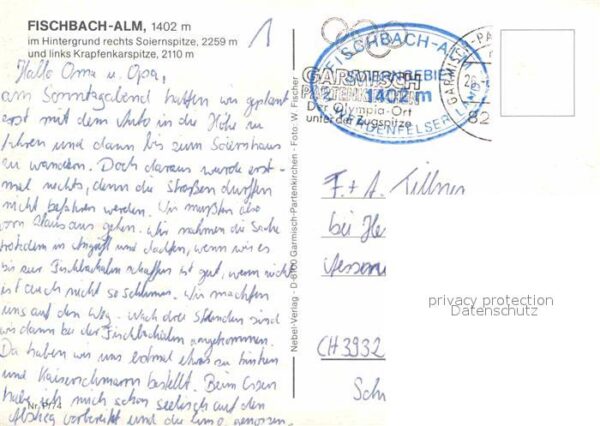 FISCHBACH-ALM, 1402 m
im Hintergrund rechts Soiernspitze, 2259 m
und links Krapfenkarspitze, 2110 m
1
Hallo Oma u. Opa,
am Sonntagabend hatten wir geplant
erst mit dem Auto in die Höhe zu
fahren und dann bis zum Soiernhaus
zu wandern. Doch daraus wurde erst-
mal nichts, denn die Straßen durften
nicht befahren werden. Wir mußten also
von Haus aus gehen. Wir nahmen die Sache
trotzdem in Angriff und dachten, wenn wir es
bis zur Fischbachalm schaffen ist gut, wenn nicht
ist auch nicht so schlimm. Wir machten
uns auf den Weg. Nach drei Stunden sind
wir dann bei der Fischbachalm angekommen.
Da haben wir uns erstmal etwas zu trinken
und Kaiserschmarrn bestellt. Beim Essen
habe ich mich schon seelisch auf den
Abstieg vorbereitet und die
Nr. P/74
Nebel-Verlag - D 8100 Garmisch-Partenkirchen - Foto: W. Fischer
FISCHBACH-ALM
SOIERNGEBIET
1402 m
WERDENFELSER LAND
GARMISCH
PARTENKIRCHEN
Der Olympia-Ort
unter der Zugspitze
GARMISCH-PA
26
82
F. + A. Tillner
bei He
CH 3932
Sch
privacy protection
Datenschutz